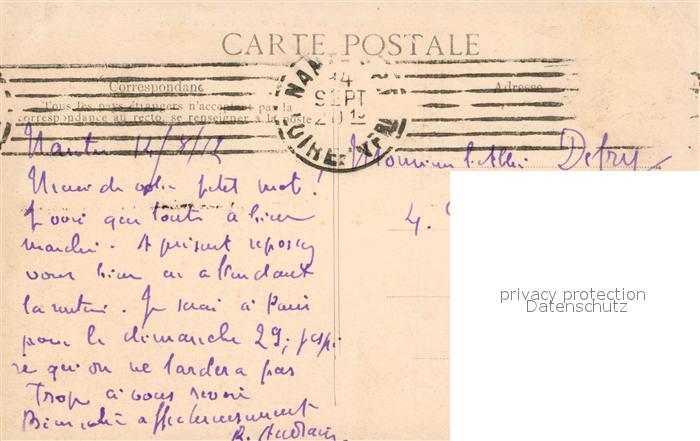 CARTE POSTALE
Correspondance
Tous les pays étrangers n'acceptent pas la
correspondance au recto, se renseigner à la poste
Adresse
NAN
14
SEPT
LOIRE INF
Nantes 14/9/12
Monsieur l'Abbé Defry
4.
Merci de votre petit mot !
Je vois que tout a bien
marché. A présent reposez
vous bien en attendant
la rentrée. Je serai à Paris
pour le dimanche 29; j'espè
re qu'on ne tardera pas
Trop à vous revoir
Bien affectueusement
R.
privacy protection
Datenschutz